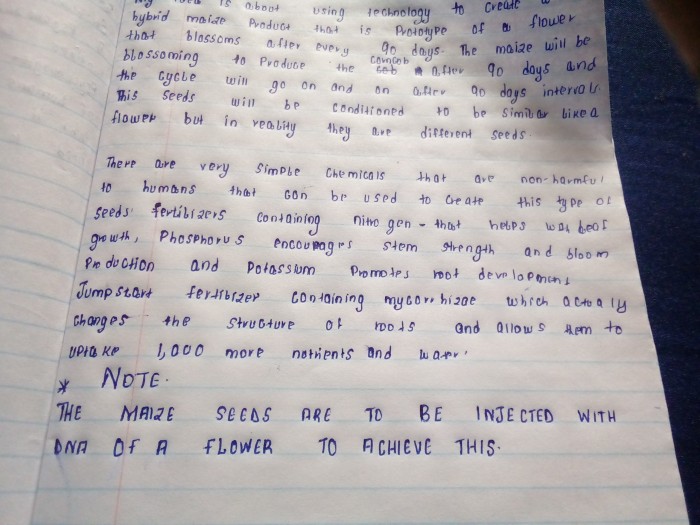 is about using technology to create a
hybrid maize Product that is Prototype of a flower
that blossoms after every 90 days. The maize will be
blossoming to Produce the corncob after 90 days and
the cycle will go on and on after 90 days intervals.
This seeds will be conditioned to be similar like a
flower but in reality they are different seeds.
There are very simple chemicals that are non-harmful
to humans that can be used to create this type of
seeds fertilizers containing nitrogen - that helps leaf
growth, Phosphorus encourages stem strength and bloom
Production and Potassium Promotes root development
Jumpstart fertilizer containing mycorrhizae which actually
changes the structure of roots and allows them to
uptake 1,000 more nutrients and water.
* NOTE.
THE MAIZE SEEDS ARE TO BE INJECTED WITH
DNA OF A FLOWER TO ACHIEVE THIS.